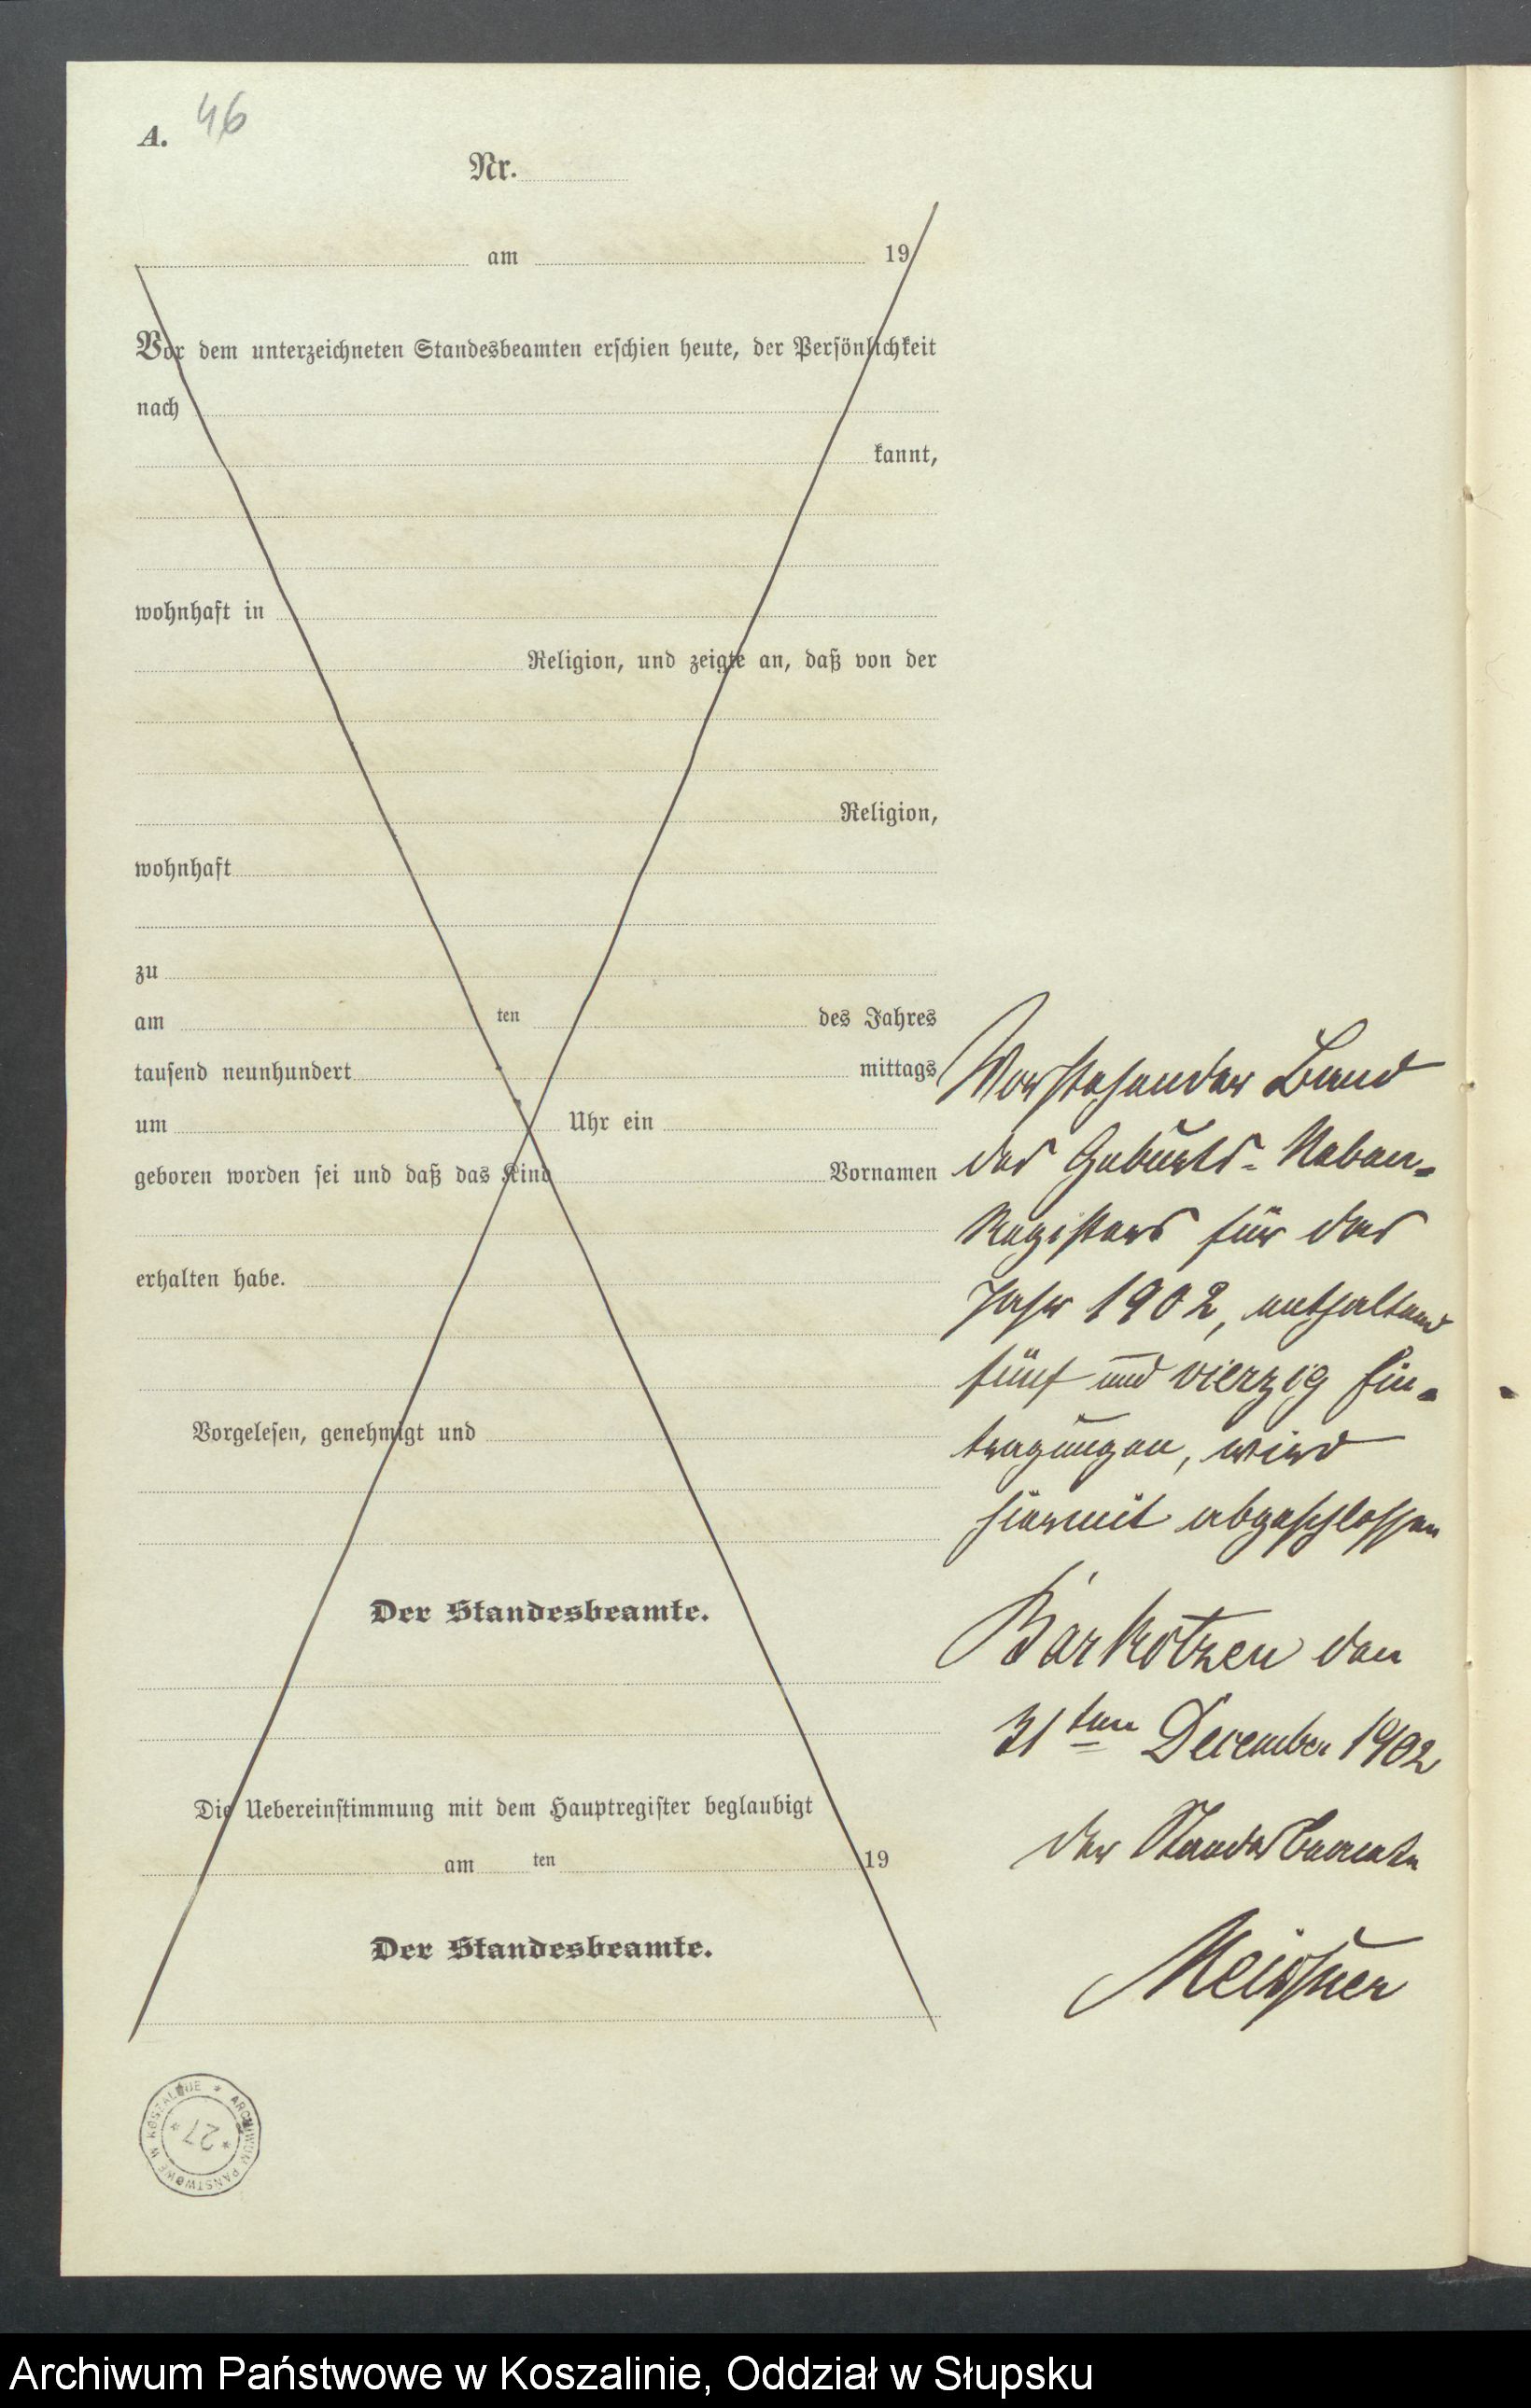 A. 46
Nr.
am 19
Vor dem unterzeichneten Standesbeamten erschien heute, der Persönlichkeit
nach
kannt,
wohnhaft in
Religion, und zeigte an, daß von der
Religion,
wohnhaft
zu
am ten des Jahres
tausend neunhundert mittags
um Uhr ein
geboren worden sei und daß das Kind Vornamen
erhalten habe.
Vorgelesen, genehmigt und
Der Standesbeamte.
Die Uebereinstimmung mit dem Hauptregister beglaubigt
am ten 19
Der Standesbeamte.
Vorstehender Band
des Geburts-Neben-
Registers für das
Jahr 1902, enthaltend
fünf und vierzig Ein-
tragungen, wird
hiermit abgeschlossen
Barkotzen den
31ten December 1902
Der Standesbeamte
Meissner
ARCHIWUM PAŃSTWOWE W KOSZALINIE
* 27 *
Archiwum Państwowe w Koszalinie, Oddział w Słupsku